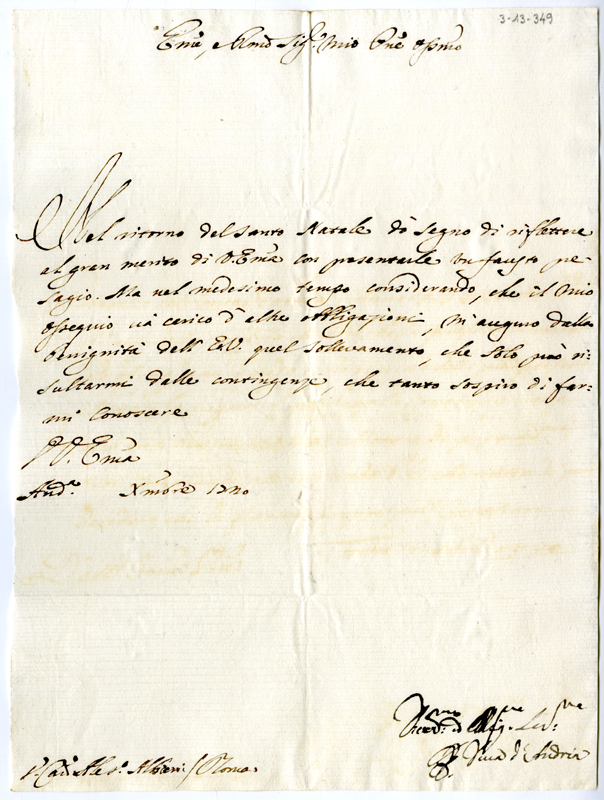 3-13-349
Em̃e, e Rmõ Sig.r mio Pñe Ossmo
Nel ritorno del Santo Natale dò segno di riflettere
al gran merito di V. Em̃a con presentarle un fausto pre-
sagio. Ma nel medesimo tempo considerando, che il mio
ossequio và carico d'altre obbligazioni, m'auguro dalla
benignità dell' E.V. quel sollevamento, che solo può ri-
sultarmi dalle contingenze, che tanto sospiro di far-
mi conoscere
D. V. Em̃a
And.a Xmbre 1720
Ser.re
Duca d'Andria
S.r Card. Aless.o Albani / Roma